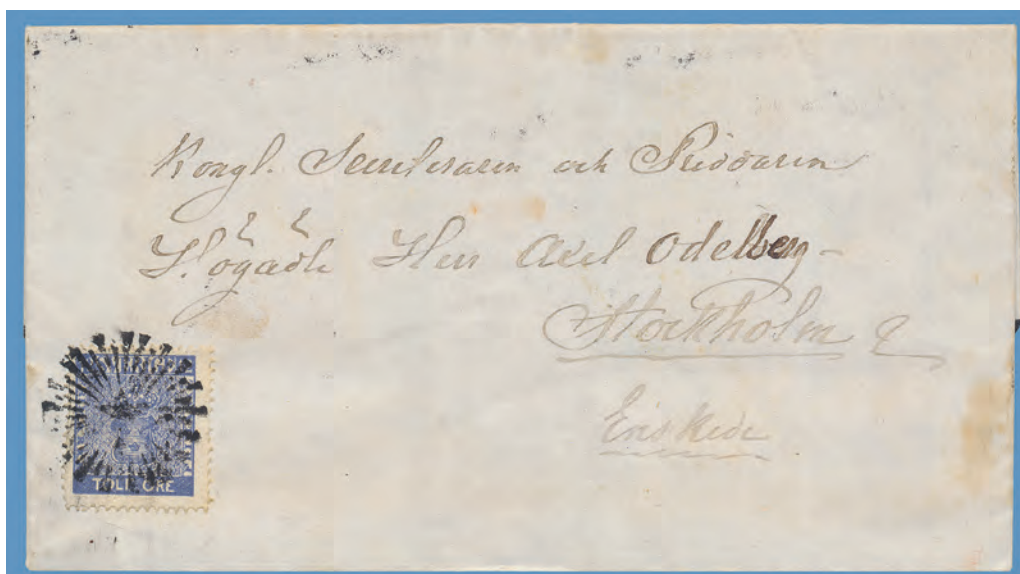 Kongl. Secreteraren och Riddaren
Högädle Herr Axel Odelberg
Stockholm
Enskede
SVERIGE
TOLF ÖRE